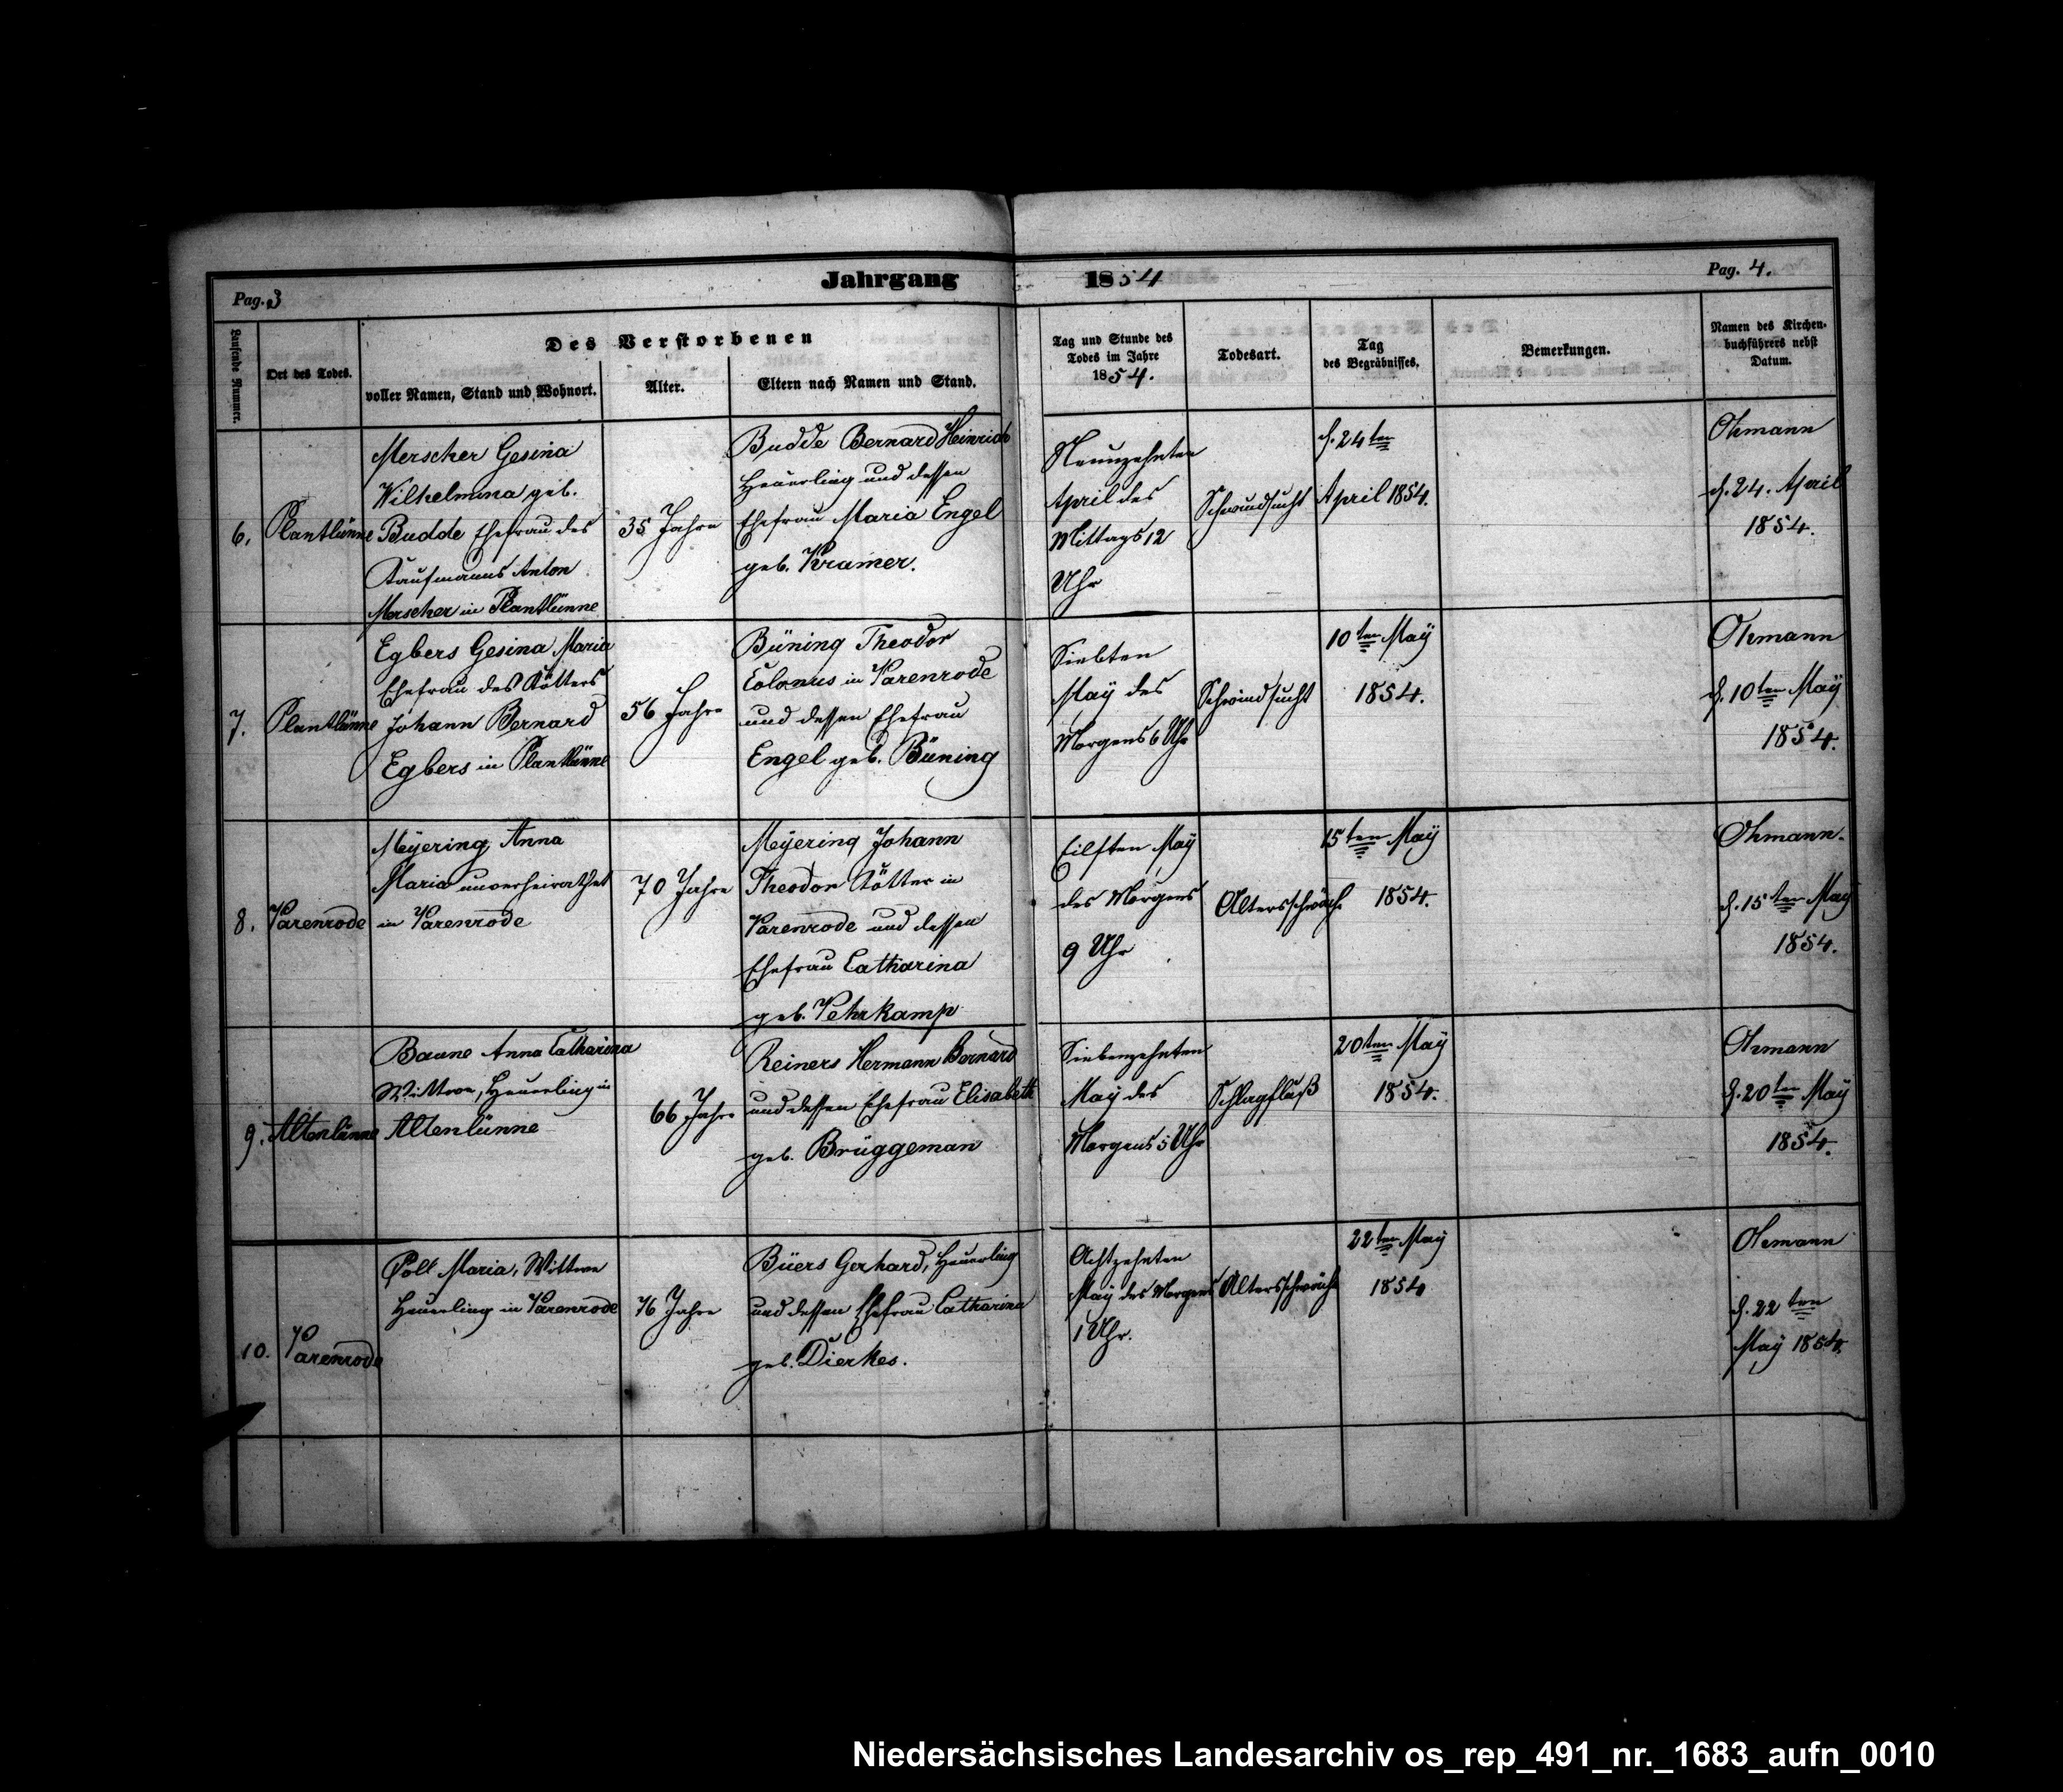 Jahrgang 1854
Pag. 3
Pag. 4.
Laufende Nummer.
Ort des Todes.
Des Verstorbenen
voller Namen, Stand und Wohnort.
Alter.
Eltern nach Namen und Stand.
Tag und Stunde des
Todes im Jahre
1854.
Todesart.
Tag
des Begräbnisses.
Bemerkungen.
Namen des Kirchen-
buchführers nebst
Datum.
6.
Plantlünne
Merscher Gesina
Wilhelmina geb.
Budde Ehefrau des
Kaufmanns Anton
Merscher in Plantlünne
35 Jahre
Budde Bernard Heinrich
Heuerling und dessen
Ehefrau Maria Engel
geb. Kramer.
Neunzehnten
April des
Mittags 12
Uhr
Schwindsucht
d. 24ten
April 1854.
Ohmann
d. 24. April
1854.
7.
Plantlünne
Egbers Gesina Maria
Ehefrau des Kötters
Johann Bernard
Egbers in Plantlünne
56 Jahre
Büning Theodor
Colonus in Varenrode
und dessen Ehefrau
Engel geb. Büning
Siebten
Maÿ des
Morgens 6 Uhr
Schwindsucht
10ten Maÿ
1854.
Ohmann
d. 10ten Maÿ
1854.
8.
Varenrode
Meÿering Anna
Maria unverheirathet
in Varenrode
70 Jahre
Meÿering Johann
Theodor Kötter in
Varenrode und dessen
Ehefrau Catharina
geb. Vehrkamp
Eilften Maÿ
des Morgens
9 Uhr
Altersschwäche
15ten Maÿ
1854.
Ohmann.
d. 15ten Maÿ
1854.
9.
Altenlünne
Baune Anna Catharina
Wittwe, Heuerling in
Altenlünne
66 Jahre
Reiners Hermann Bernard
und dessen Ehefrau Elisabeth
geb. Brüggeman
Siebenzehnten
Maÿ des
Morgens 5 Uhr
Schlagfluß
20ten Maÿ
1854.
Ohmann
d. 20ten Maÿ
1854.
10.
Varenrode
Poll Maria, Wittwe
Heuerling in Varenrode
76 Jahre
Büers Gerhard, Heuerling
und dessen Ehefrau Catharina
geb. Dierkes.
Achtzehnten
Maÿ des Morgens
1 Uhr.
Altersschwäche
22ten Maÿ
1854
Ohmann
d. 22ten
Maÿ 1854.
Niedersächsisches Landesarchiv os_rep_491_nr._1683_aufn_0010